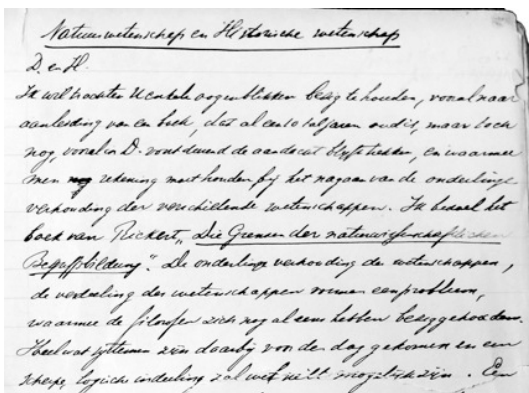 Natuurwetenschap en Historische wetenschap
D. en H.
Ik wil trachten U enkele oogenblikken bezig te houden, vooral naar
aanleiding van een boek, dat al een 10 tal jaren oud is, maar toch
nog, vooral in D. voortdurend de aandacht blijft trekken, en waarmee
men rekening moet houden bij het nagaan van de onderlinge
verhouding der verschillende wetenschappen. Ik bedoel het
boek van Rickert „Die Grenzen der naturwissenschaftlichen
Begriffsbildung". De onderlinge verhouding der wetenschappen,
de verdeeling des wetenschappen vormen een probleem,
waarmee de filosofen zich nog al eens hebben bezig gehouden.
Heel wat systemen zijn daarbij voor de dag gekomen en een
scherpe, logische indeeling zal wel niet mogelijk zijn. Een